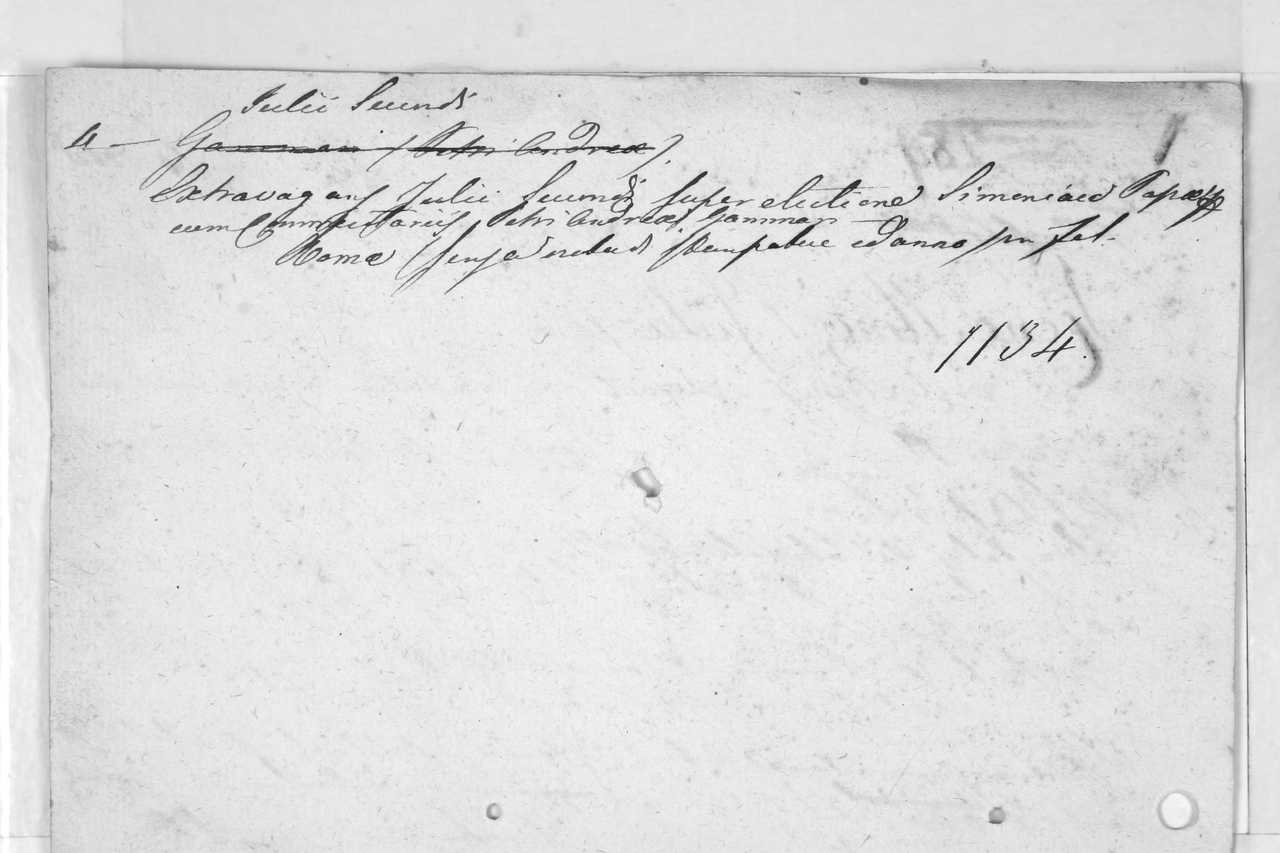 Julii Secundi
4 — Gammari (Petri Andreæ).
Extravagans Julii Secundi super electione Simoniaca Papæ
cum Commentariis Petri Andreæ Gammari —
Romæ (senza nota di stampatore ed anno) in fol.
1134.